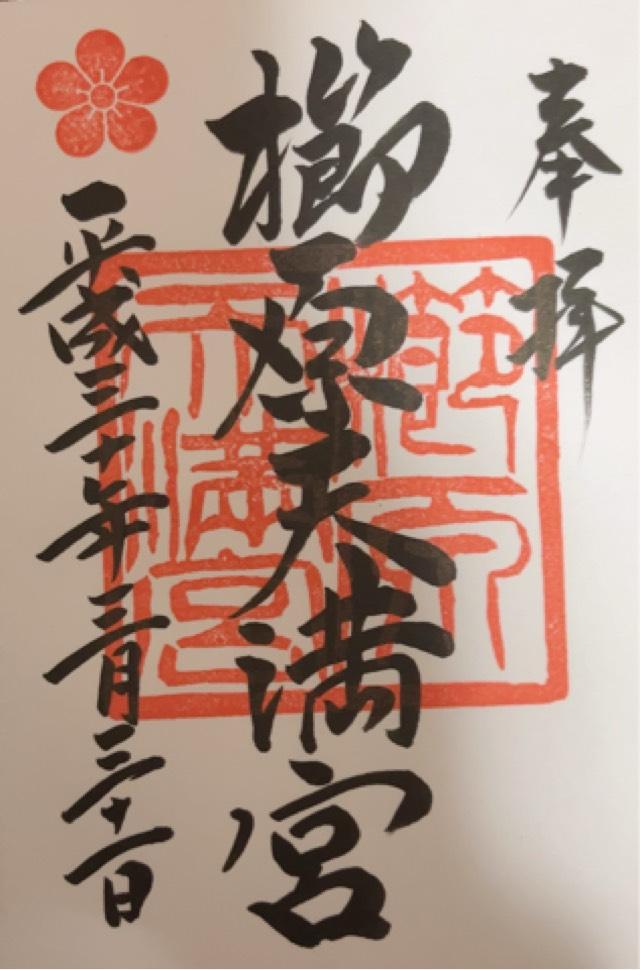 奉拝
櫛原天満宮
平成三十年三月三十一日
櫛原
天満宮